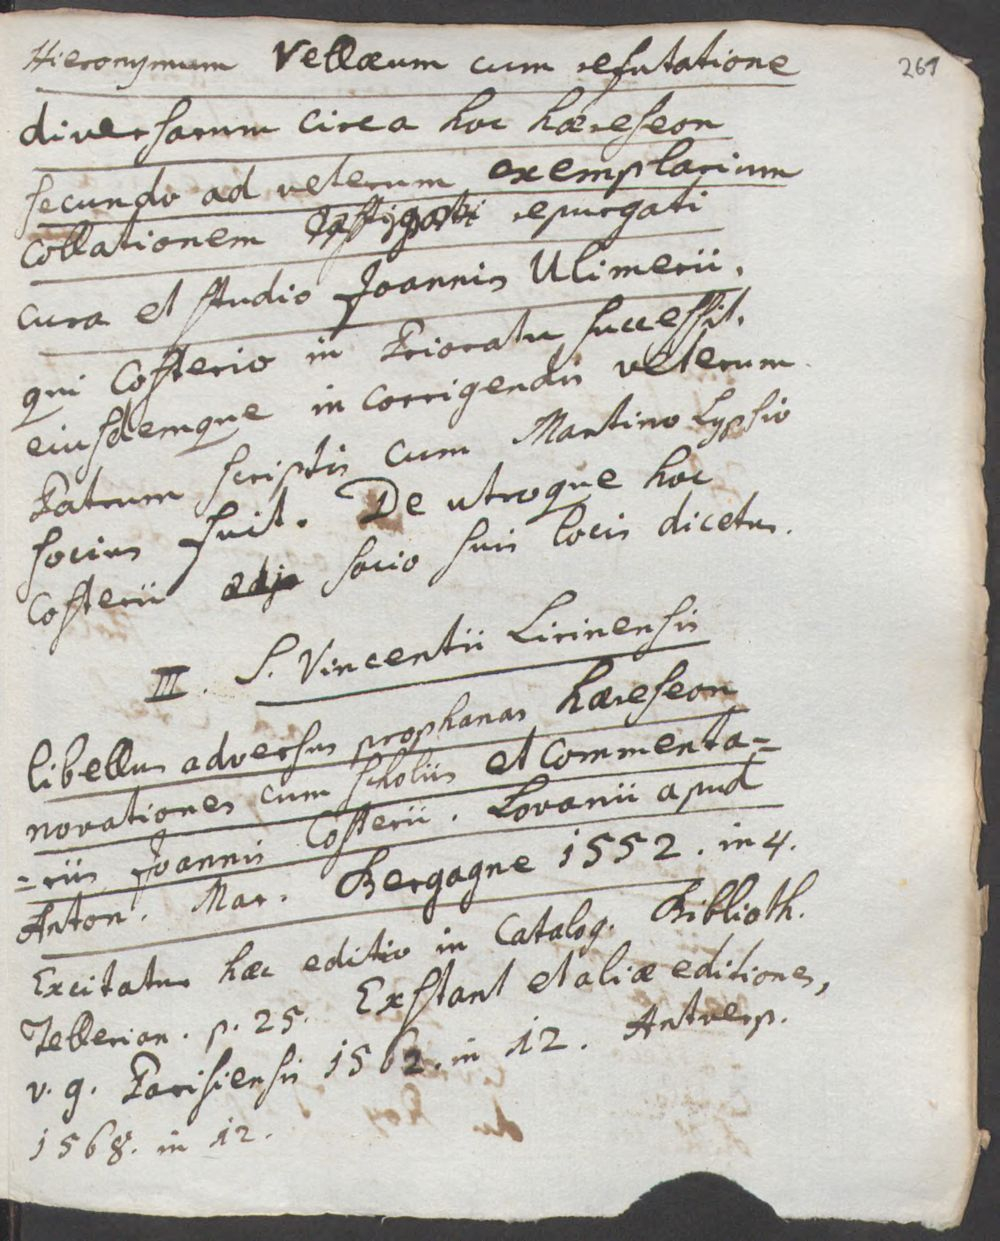 261
Hieronymum Vellæum cum refutatione
diversarum circa hoc hæreseon
secundo ad veterum exemplarium
collationem repurgati
cura et studio Joannis Ulimerii,
qui Costerio in Prioratu successit,
eiusdemque in corrigendis veterum
Patrum scriptis cum Martino Lypsio
socius fuit. De utroque hoc
Costerii socio suis locis dicetur.
III. S. Vincentii Lirinensis
libellus adversus prophanas hæreseon
novationes cum scholiis et commenta=
=riis Joannis Costerii. Lovanii apud
Anton. Mar. Bergagne 1552. in 4.
Excitatur hæc editio in Catalog. Biblioth.
Tellerian. p. 25. Exstant et aliæ editiones,
v. g. Parisiensis 1562. in 12. Antverp.
1568. in 12.